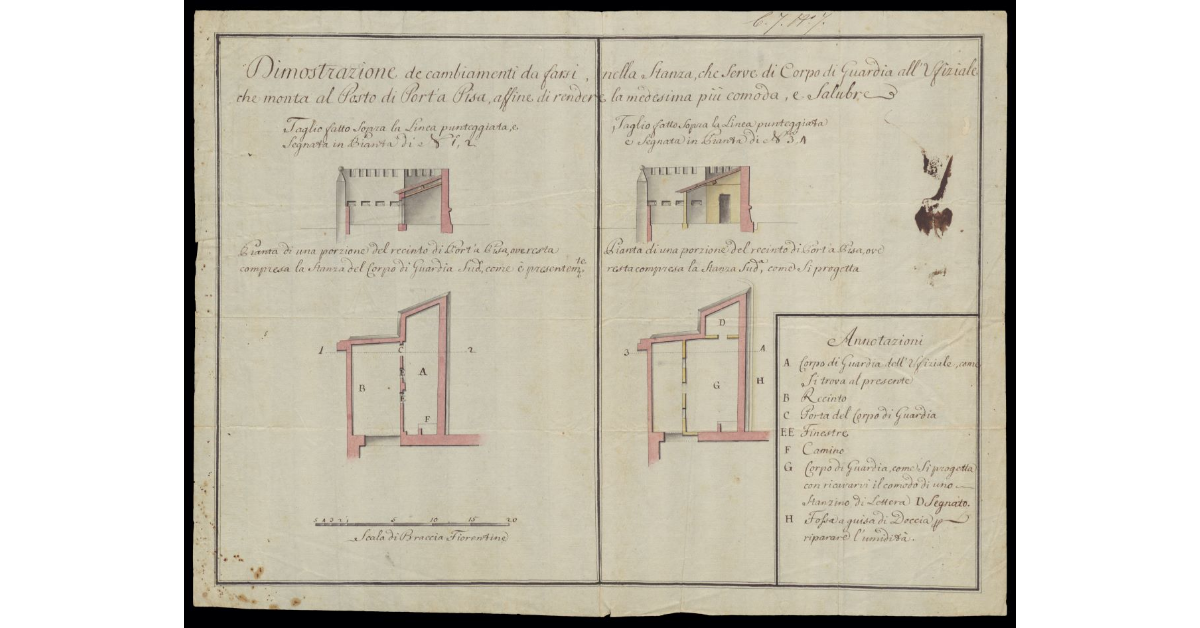 Dimostrazione de cambiamenti da farsi, nella Stanza, che Serve di Corpo di Guardia all'Uffiziale
che monta al Posto di Port'a Pisa, affine di rendere la medesima più comoda, e Salubre
Taglio fatto Sopra la Linea punteggiata, e
Segnata in Pianta di N.º 1, 2
Pianta di una porzione del recinto di Port'a Pisa, ove resta
compresa la Stanza del Corpo di Guardia Sud.ª, come è presentem.te
1
2
A
B
C
E
E
F
5 4 3 2 1 5 10 15 20
Scala di Braccia Fiorentine
Taglio fatto Sopra la Linea punteggiata
e Segnata in Pianta di N.º 3 4
Pianta di una porzione del recinto di Port'a Pisa, ove
resta compresa la Stanza Sud.ª, come Si progetta
3
4
D
G
H
Annotazioni
A Corpo di Guardia dell'Uffiziale, come
Si trova al presente
B Recinto
C Porta del Corpo di Guardia
EE Finestre
F Camino
G Corpo di Guardia, come Si progetta
con ricavarvi il comodo di uno
Stanzino di Lettera D Segnato.
H Fossa a guisa di Doccia p
riparare l'umidità.